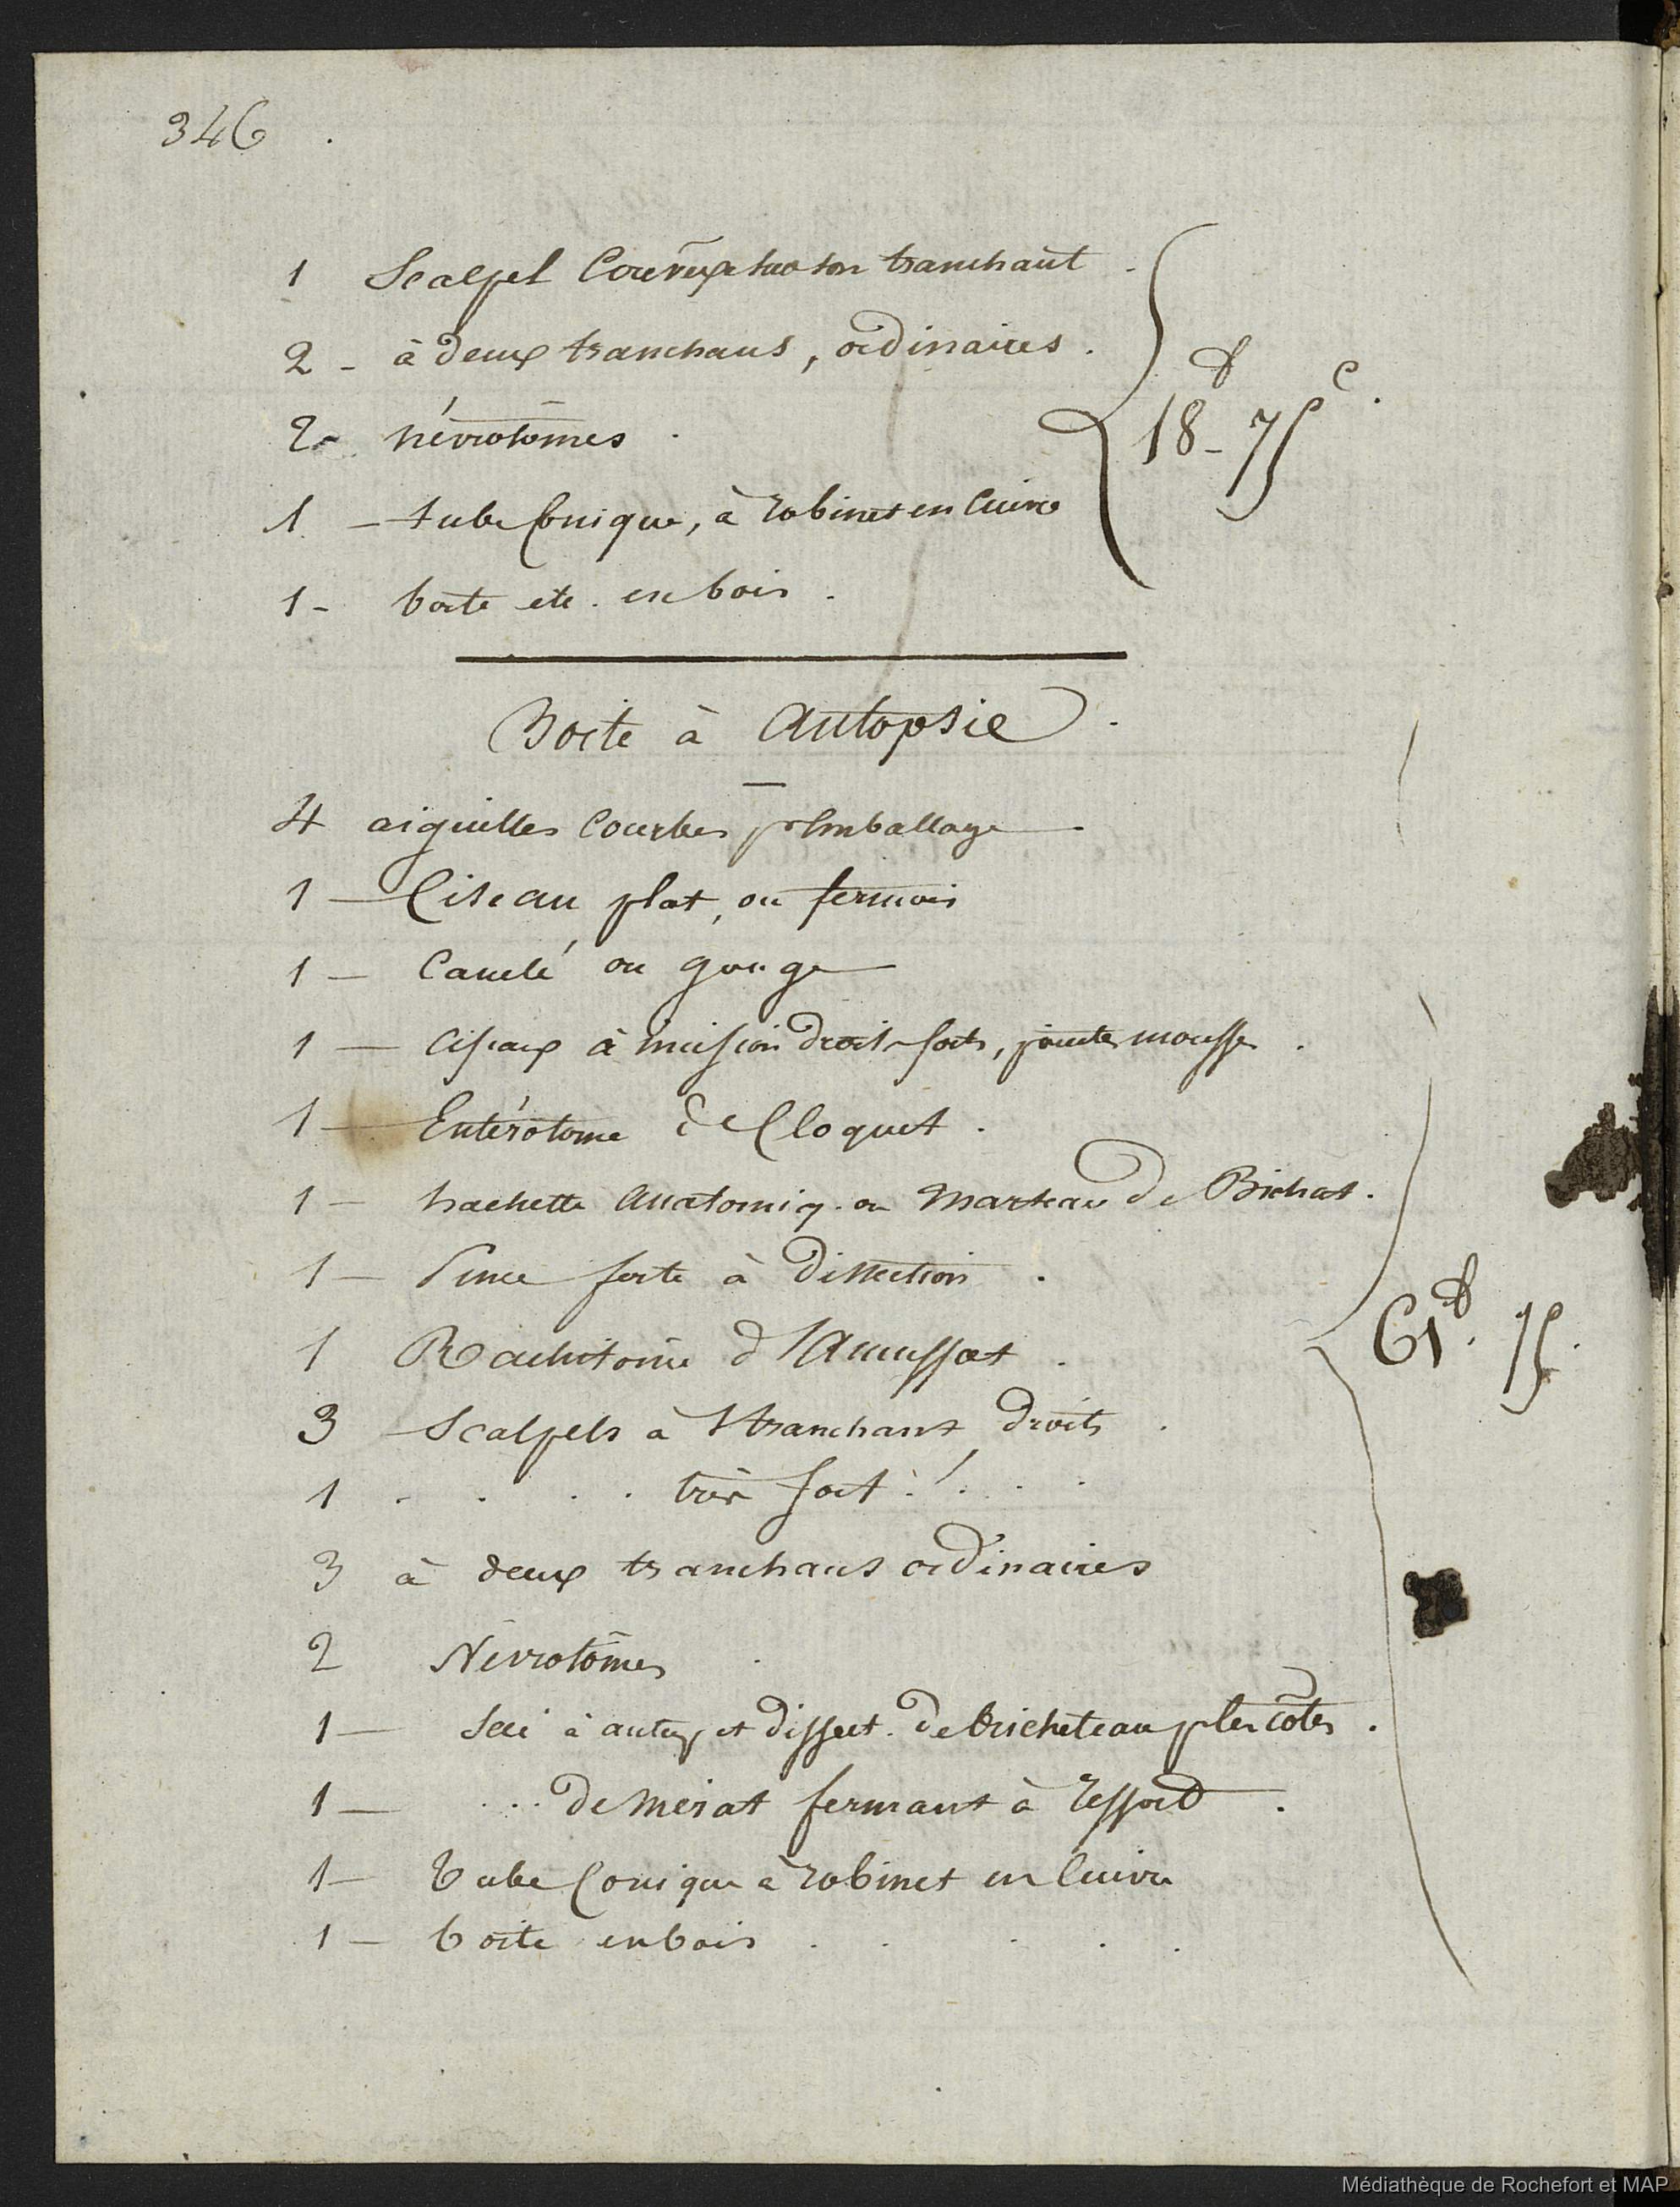 346
1 Scalpel Convexe sur son tranchant
2 - à deux tranchans, ordinaires.
2 - névrotômes.
1 - tube Conique, à robinet en Cuivre
1 - boîte etc. en bois.
18 f - 75 c.
Boite à Autopsie.
4 aiguilles Courbes pr Emballage
1 - Ciseau plat, ou fermoir
1 - Canelé ou gouge
1 - Ciseaux à incision droits forts, pointes mousses.
1 - Entérotome de Cloquet.
1 - hachette Anatomiq. ou Marteau de Bichat.
1 - Pince forte à dissection.
1 Rachitome d'Amussat.
3 Scalpels à 1 tranchant droits.
1 . . . . très fort . 1 . . .
3 à deux tranchans ordinaires
2 Névrotômes
61 f. 75.
1 - Scie à autop. et dissect. de bricheteau p les Côtes.
1 - ... de Mérat fermant à ressort.
1 - Tube Conique à robinet en Cuivre
1 - boite en bois . . . . .
Médiathèque de Rochefort et MAP